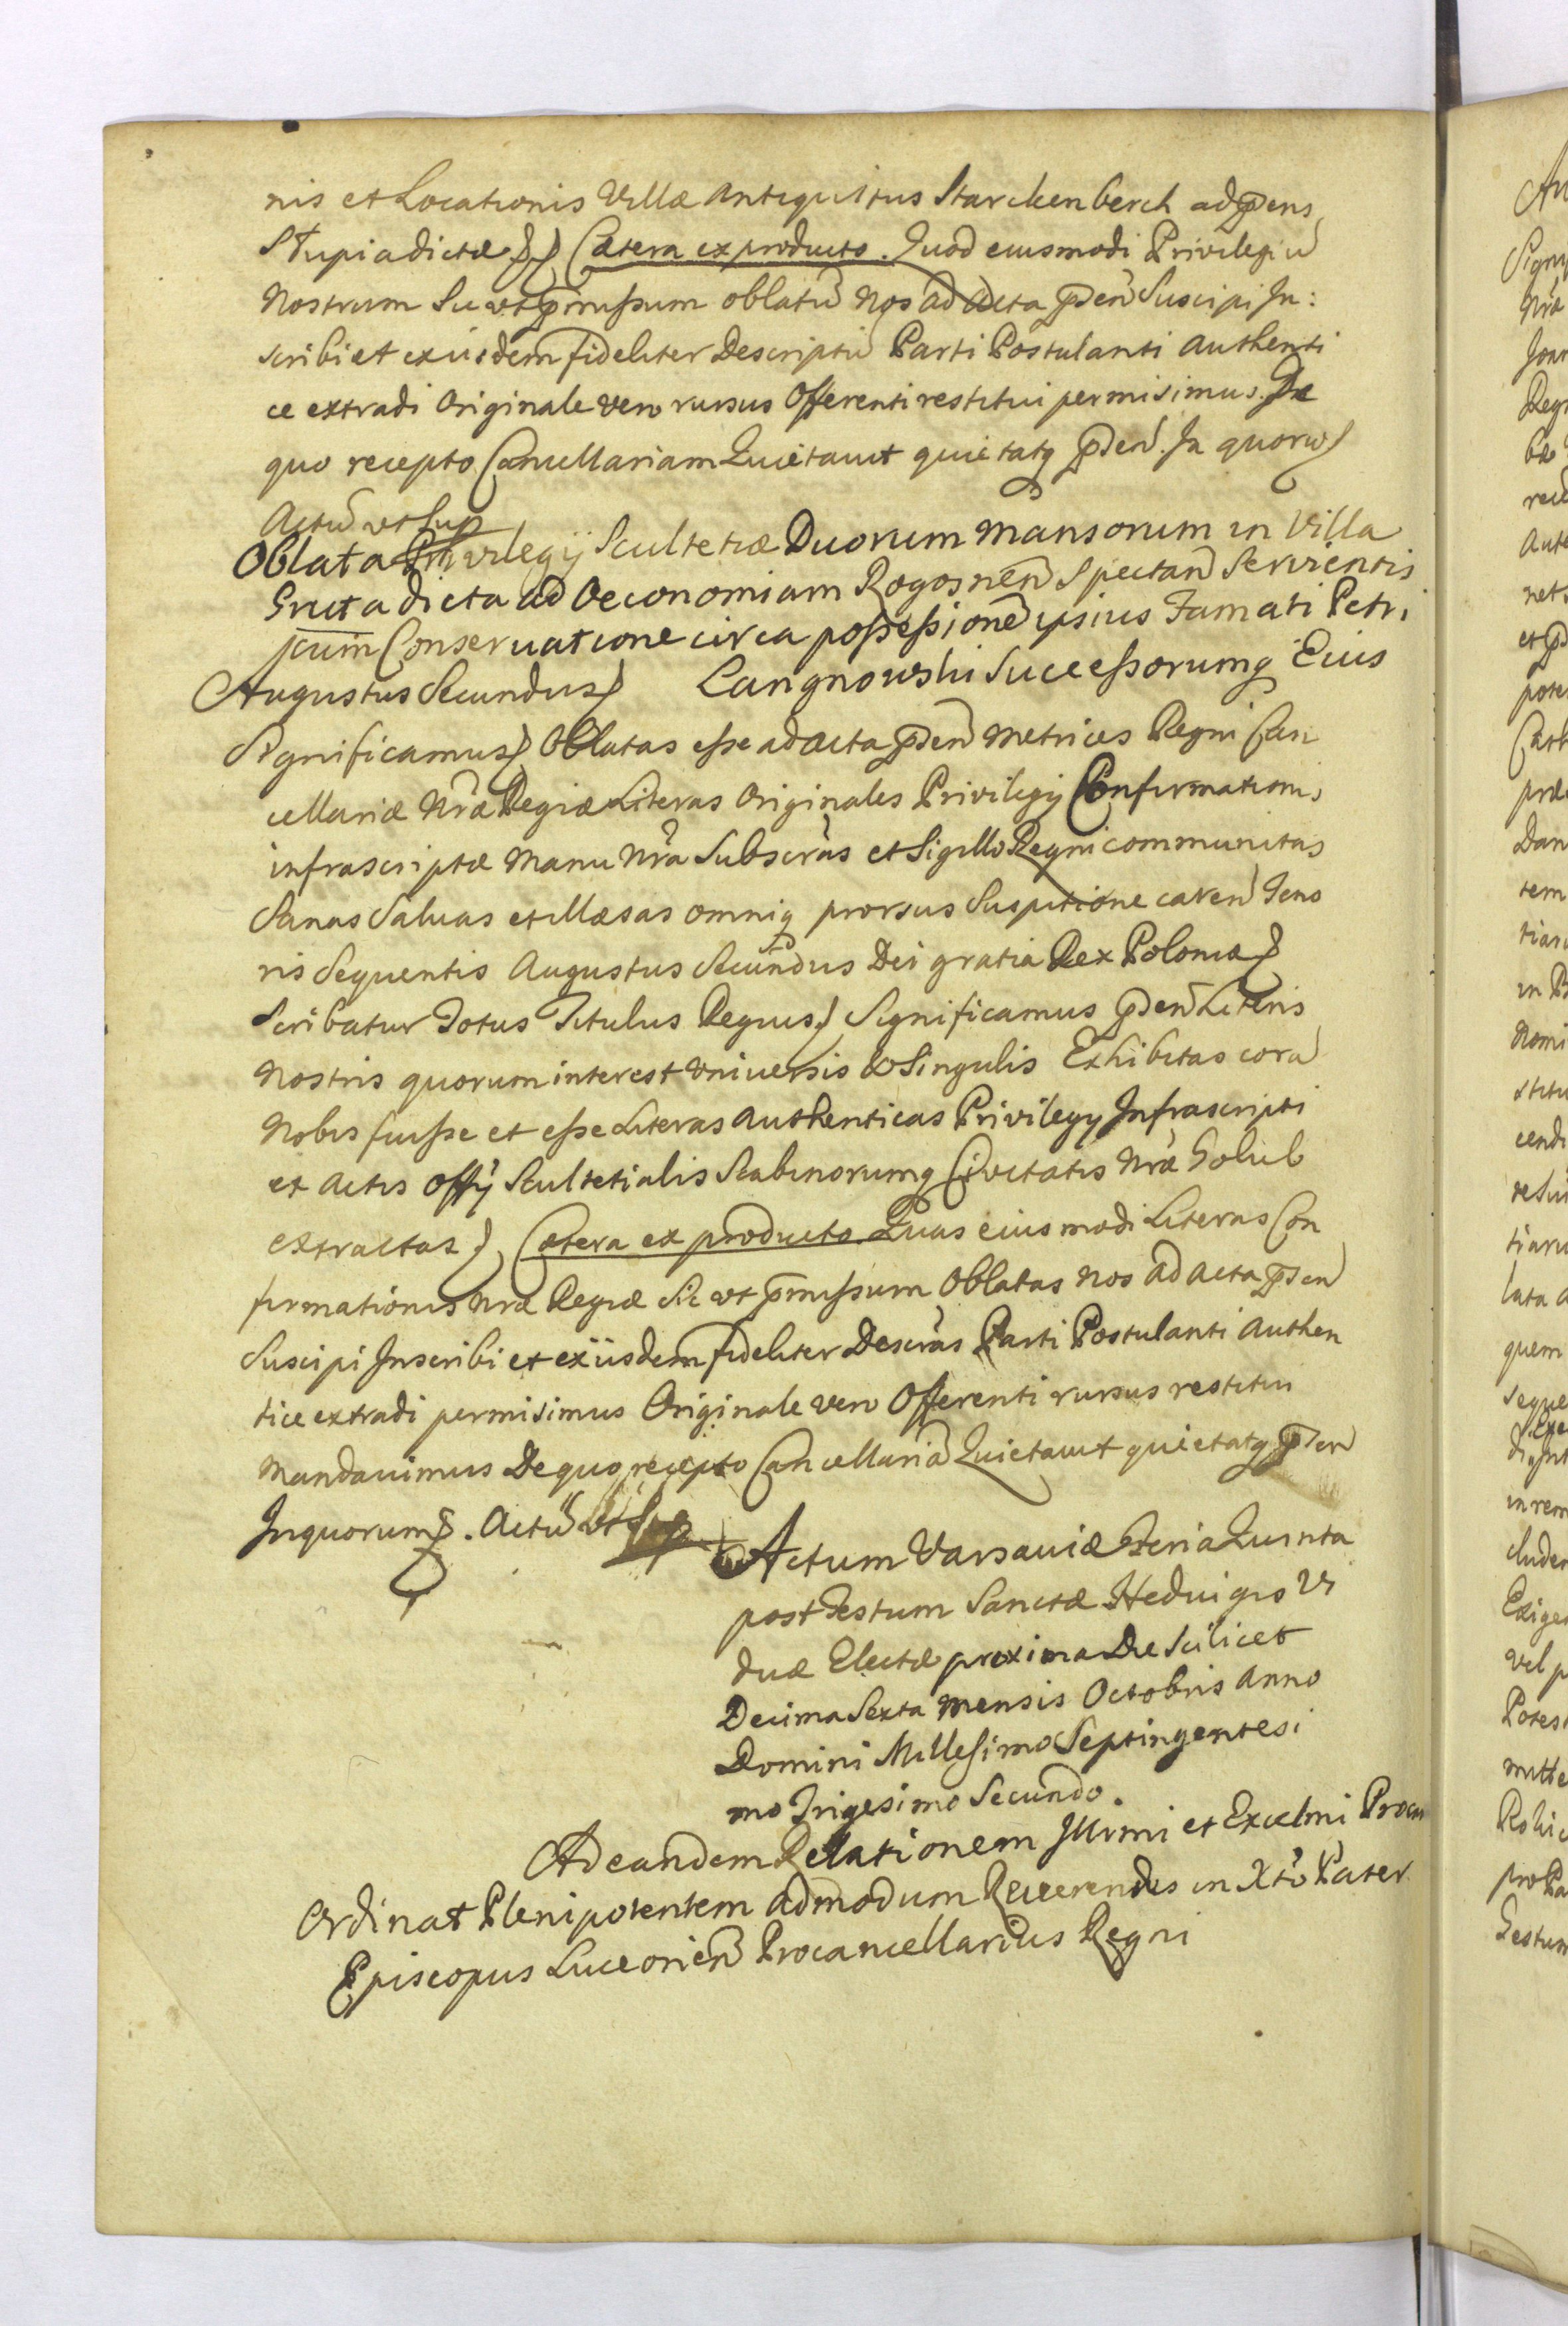 nis et Locationis Villæ Antiquitus Starckenberch ad p̄sens
Stupia dictæ Cætera ex producto. Quod eiusmodi Privilegiũ
Nostrum Sic vt p̄missum oblatũ Nos ad Acta p̄sen̄ Suscipi In:
scribi et exiisdem fideliter Descriptũ Parti Postulanti Authenti
ce extradi Originale vero rursus Offerenti restitui permisimus. De
quo recepto Cancellariam Quietavit quietatq p̄sen̄. In quorũ
Actũ vt Sup
Oblata Privilegij Scultetiæ Duorum Mansorum in Villa
Gruta dicta ad Oeconomiam Rogosnen̄ Spectan̄ Servientis
cum Conseruatione circa possessionẽ ipsius Famati Petri
Augustus Secundus Langnowski Successorumq Eius
Significamus Oblatas esse ad Acta p̄sen̄ Metrices Regni Can
cellariæ Nr̃æ Regiæ Literas Originales Privilegij Confirmationis
infrascriptæ Manu Nr̃a Subscr̃as et Sigillo Regni communitas
Sanas Saluas et illæsas omniq prorsus Suspitione caren̄ Teno
ris Sequentis Augustus Secundus Dei gratia Rex Poloniæ
Scribatur Totus Titulus Regius Significamus p̄sen̄ Literis
Nostris quorum interest Vniuersis & Singulis Exhibitas corã
Nobis fuisse et esse Literas Authenticas Privilegij Infrascripti
et Actis Offÿ Scultetialis Scabinorumq Civitatis Nr̃æ Golub
extractas Cætera ex producto Quas eiusmodi Literas Con
firmationis Nr̃æ Regiæ Sic vt p̄missum Oblatas Nos ad Acta p̄sen̄
Suscipi Inscribi et exiisdem fideliter Descr̃as Parti Postulanti Authen
tice extradi permisimus Originale vero Offerenti rursus restitui
Mandauimus De quo recepto Cancellariã Quietavit quietatq p̄sen̄
In quorum. Actũ vt Sup
Actum Varsauiæ Feria Quinta
post Festum Sanctæ Hedvigis Vi
duæ Electæ proxima Die Scilicet
Decima Sexta Mensis Octobris Anno
Domini Millesimo Septingentesi
mo Trigesimo Secundo.
Ad eandem Relationem Illrmi et Excelmi Procan
Ordinat Plenipotentem Admodum Reuerendus in Xto Pater
Episcopus Luceorien̄ Procancellarius Regni